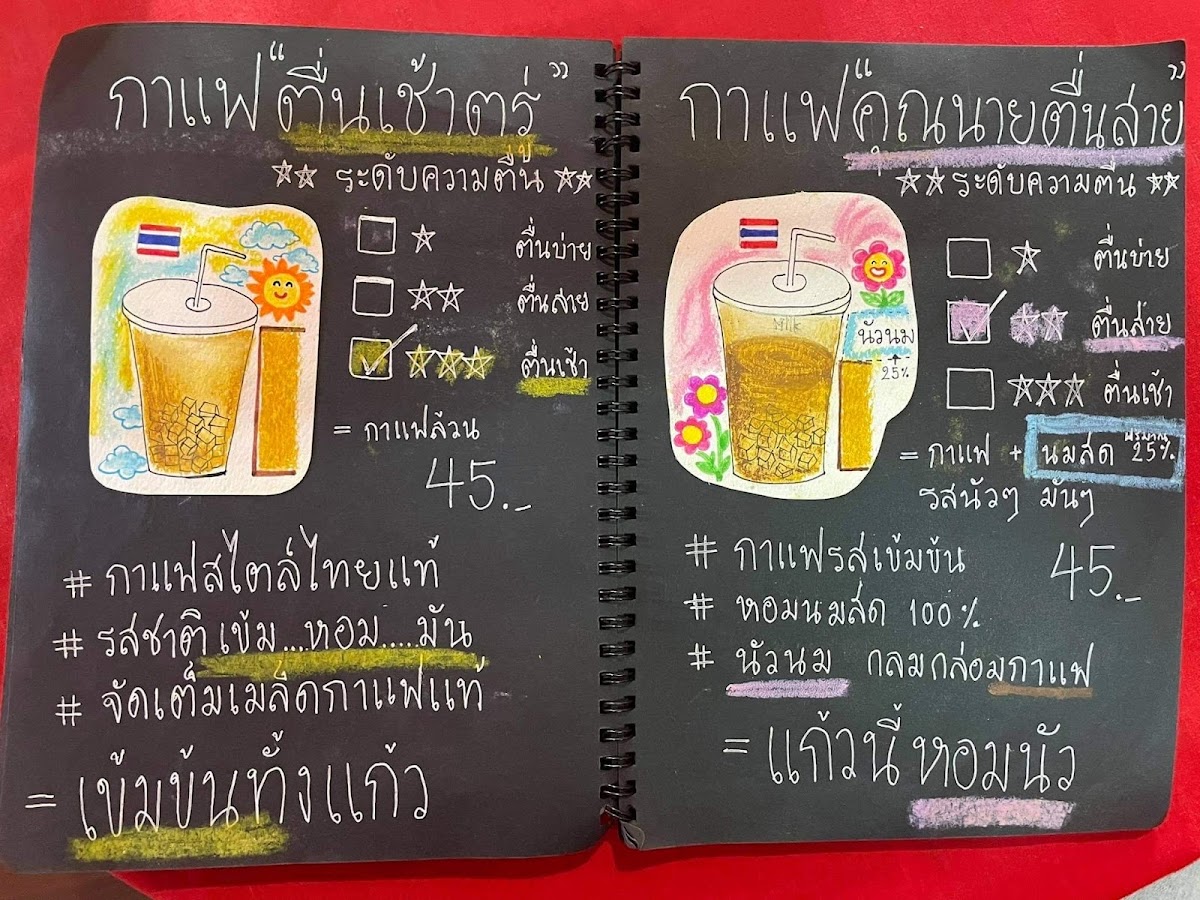 กาแฟ“ตื่นเช้าตรู่”
☆☆ ระดับความตื่น ☆☆
☆ ตื่นบ่าย
☆☆ ตื่นสาย
☆☆☆ ตื่นเช้า
= กาแฟล้วน
45.-
# กาแฟสไตล์ไทยแท้
# รสชาติ เข้ม...หอม....มัน
# จัดเต็มเมล็ดกาแฟแท้
= เข้มข้นทั้งแก้ว
กาแฟ“คุณนายตื่นสาย”
☆☆ ระดับความตื่น ☆☆
☆ ตื่นบ่าย
☆☆ ตื่นสาย
☆☆☆ ตื่นเช้า
Milk
นัวนม
25%
= กาแฟ + นมสด 25%
รสนัวๆ มันๆ
45.-
# กาแฟรสเข้มข้น
# หอมนมสด 100%
# นัวนม กลมกล่อมกาแฟ
= แก้วนี้หอมนัว